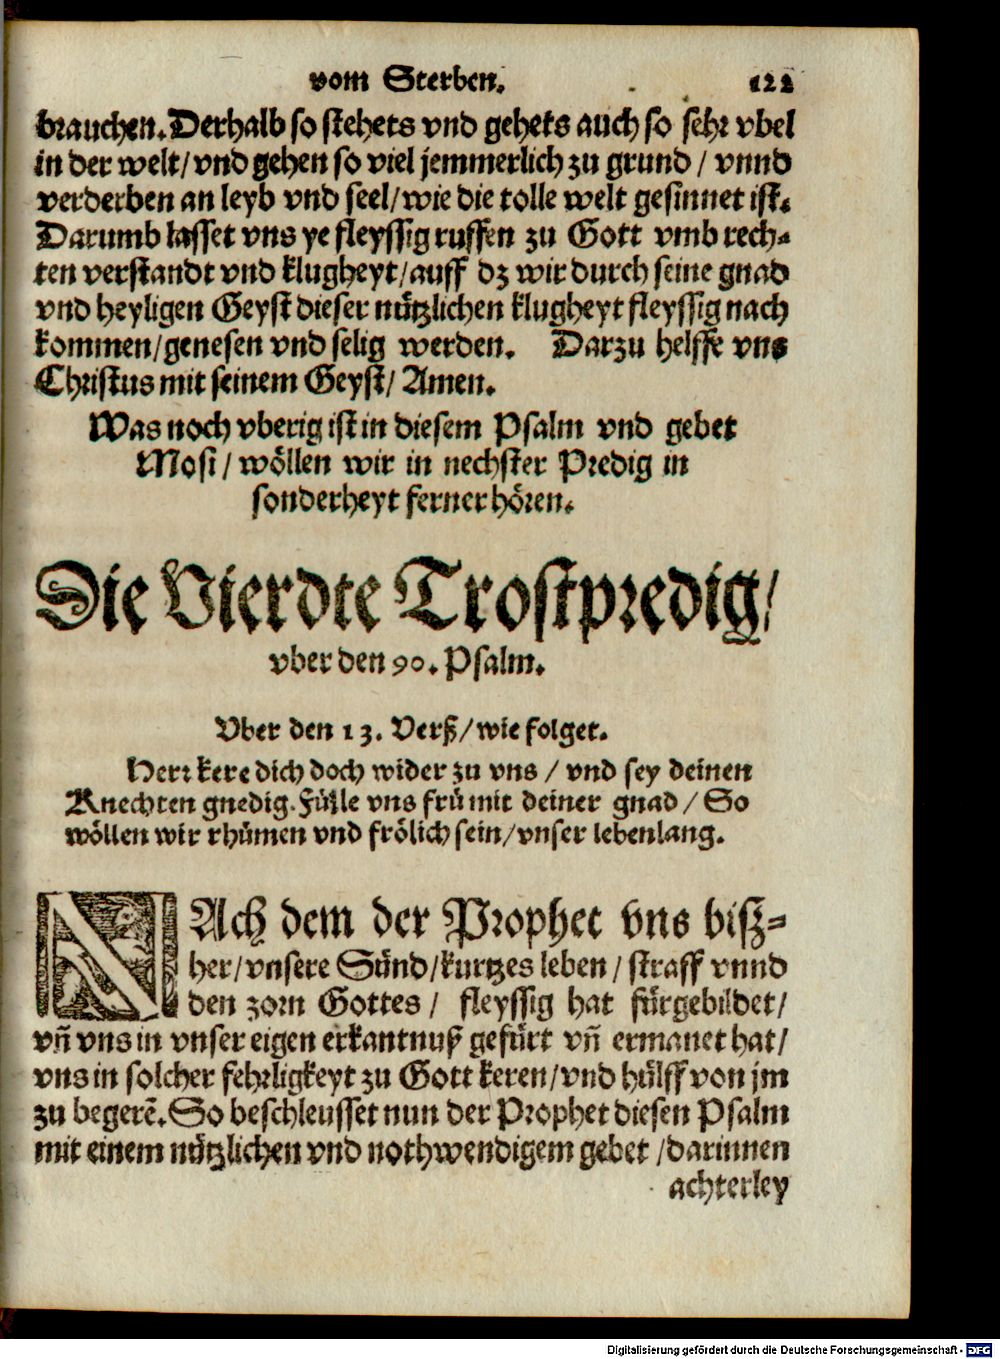 vom Sterben. 122
brauchen. Derhalb so stehets vnd gehets auch so sehr vbel
in der welt/ vnd gehen so viel jemmerlich zu grund / vnnd
verderben an leyb vnd seel/ wie die tolle welt gesinnet ist.
Darumb lasset vns ye fleyssig ruffen zu Gott vmb rech-
ten verstandt vnd klugheyt/ auff dz wir durch seine gnad
vnd heyligen Geyst dieser nützlichen klugheyt fleyssig nach
kommen/ genesen vnd selig werden. Darzu helffe vns
Christus mit seinem Geyst/ Amen.
Was noch vberig ist in diesem Psalm vnd gebet
Mosi/ wöllen wir in nechster Predig in
sonderheyt ferner hören.
Die Vierdte Trostpredig/
vber den 90. Psalm.
Vber den 13. Verß/ wie folget.
Herr kere dich doch wider zu vns / vnd sey deinen
Knechten gnedig. Fülle vns frü mit deiner gnad / So
wöllen wir rhümen vnd frölich sein/ vnser lebenlang.
NAch dem der Prophet vns biß-
her/ vnsere Sünd/ kurtzes leben / straff vnnd
den zorn Gottes / fleyssig hat fürgebildet/
vñ vns in vnser eigen erkantnuß gefürt vñ ermanet hat/
vns in solcher fehrligkeyt zu Gott keren/ vnd hülff von jm
zu begerẽ. So beschleusset nun der Prophet diesen Psalm
mit einem nützlichen vnd nothwendigem gebet / darinnen
achterley
Digitalisierung gefördert durch die Deutsche Forschungsgemeinschaft - DFG